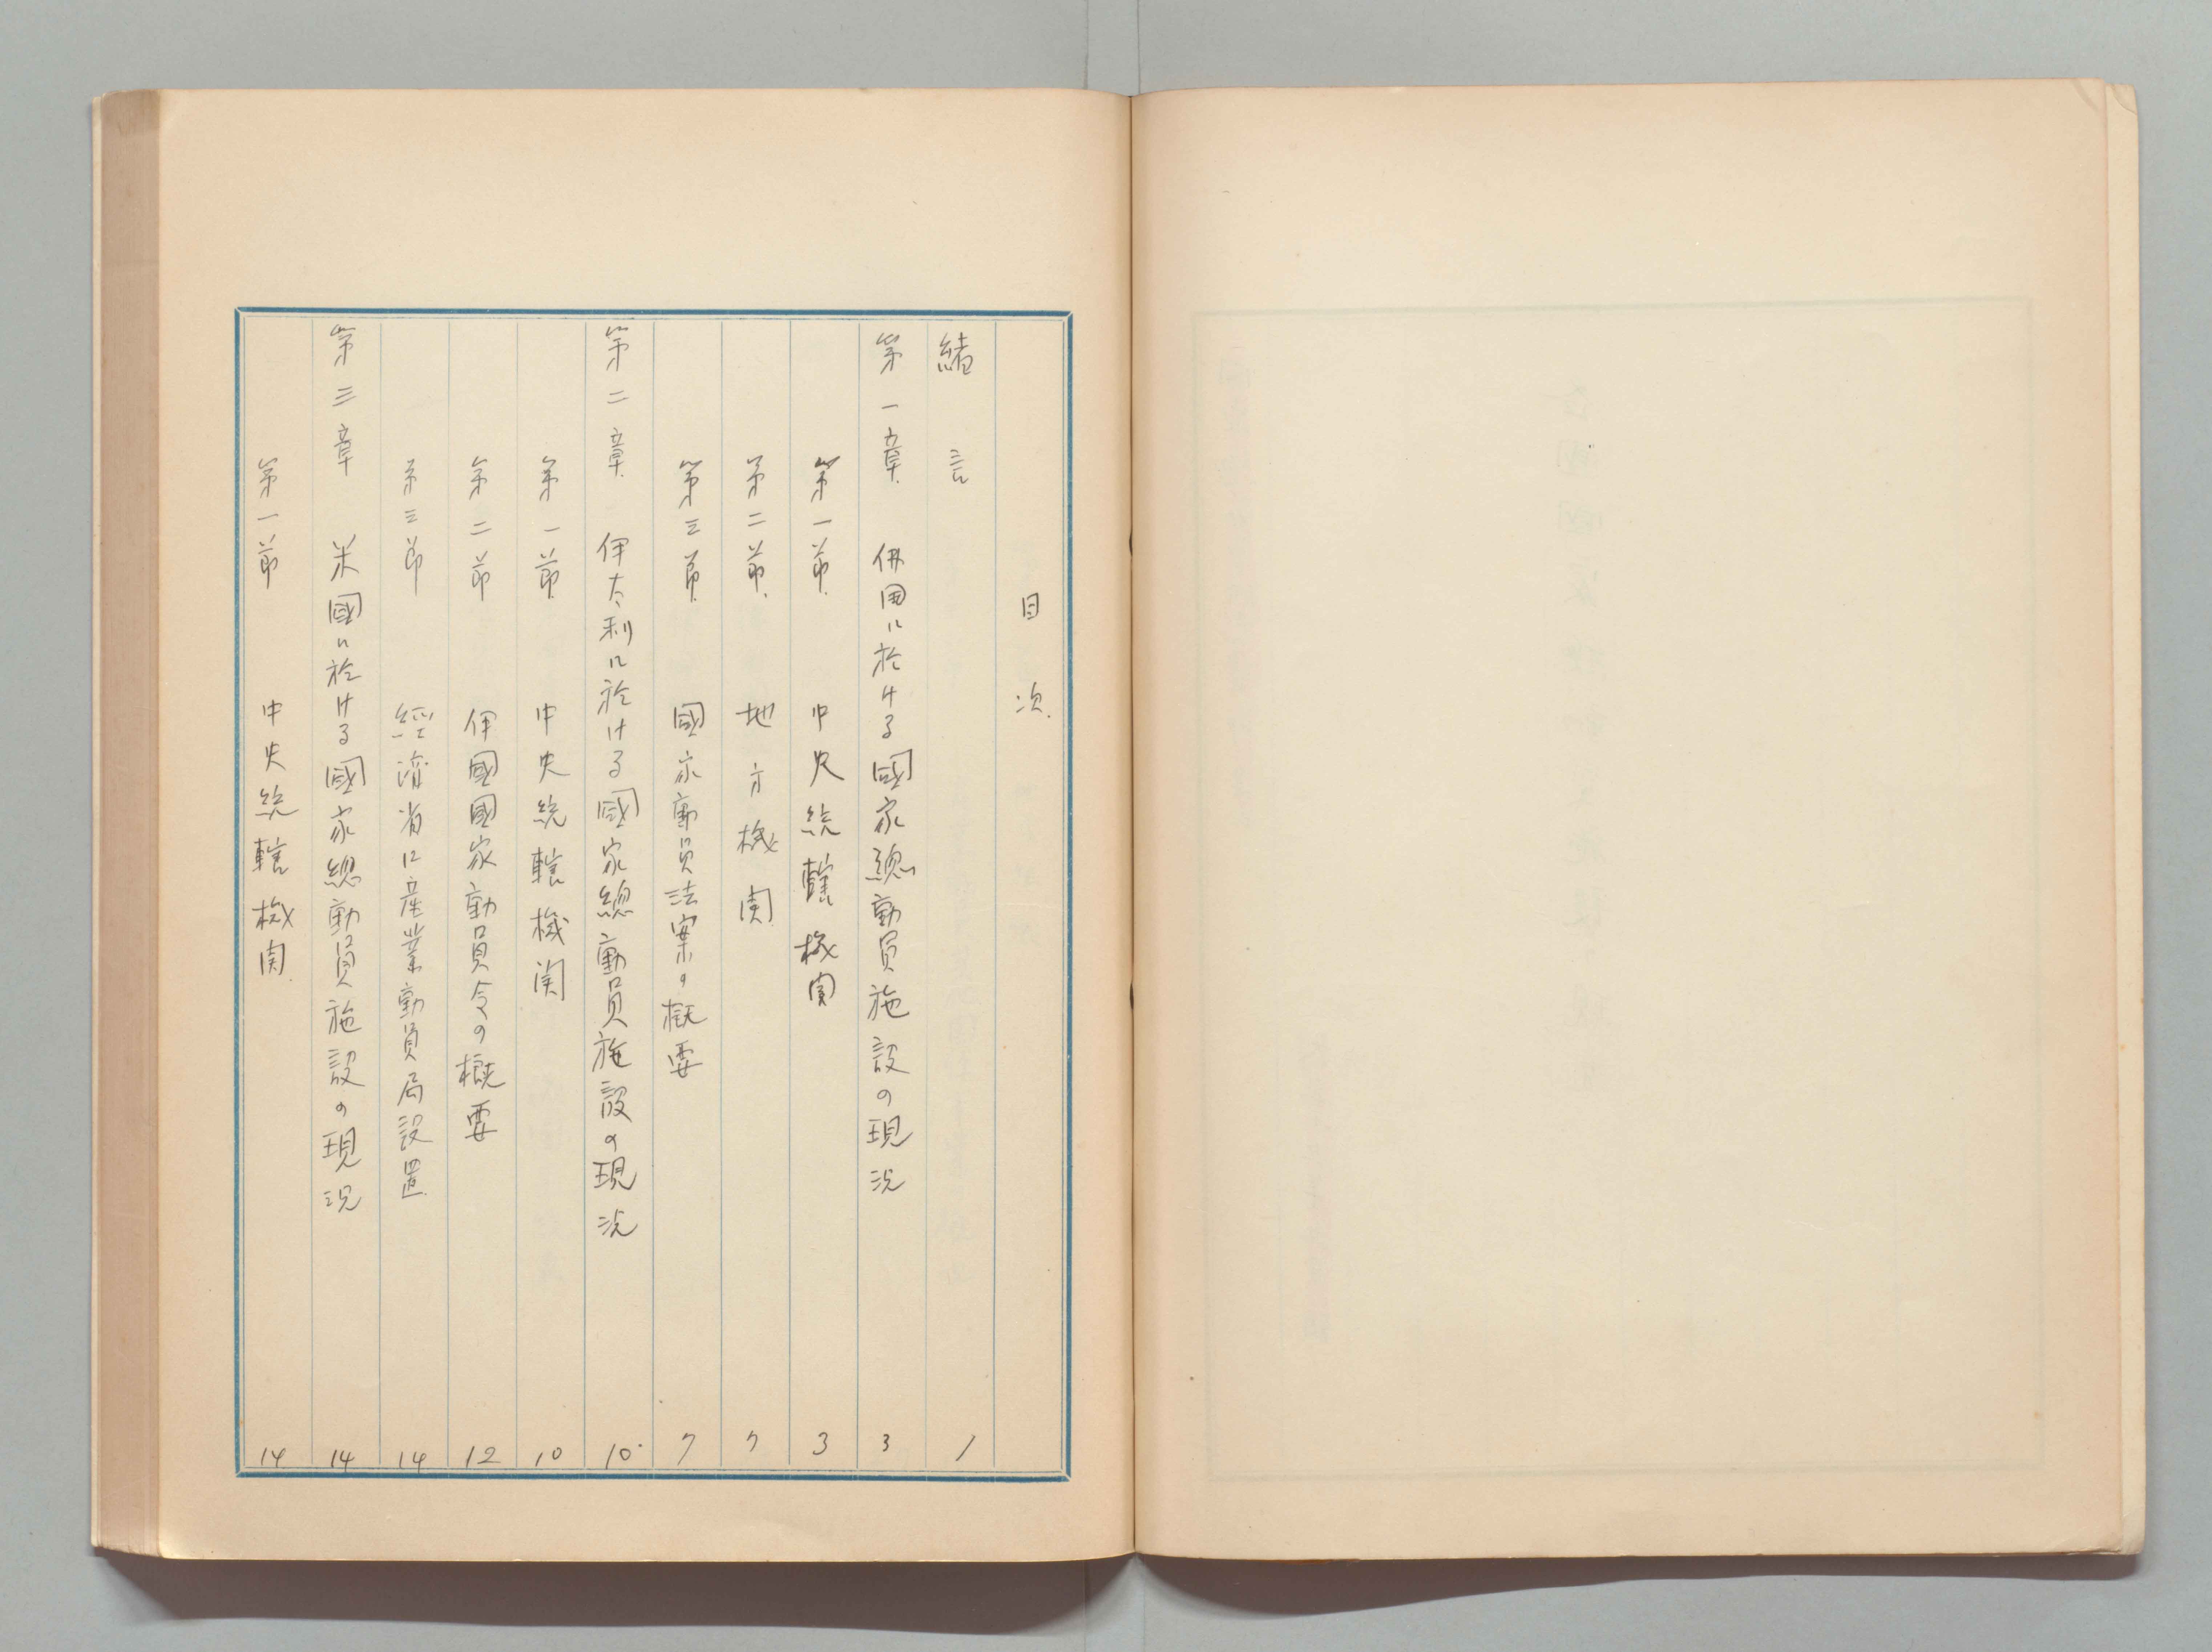 目次
緒言 1
第一章 佛国に於ける國家總動員施設の現況 3
第一節 中央統轄機関 3
第二節 地方機関 7
第三節 國家動員法案の概要 7
第二章 伊太利に於ける國家總動員施設の現況 10
第一節 中央統轄機関 10
第二節 伊國國家動員令の概要 12
第三節 經済省に産業動員局設置 14
第三章 米國に於ける國家總動員施設の現況 14
第一節 中央統轄機関 14